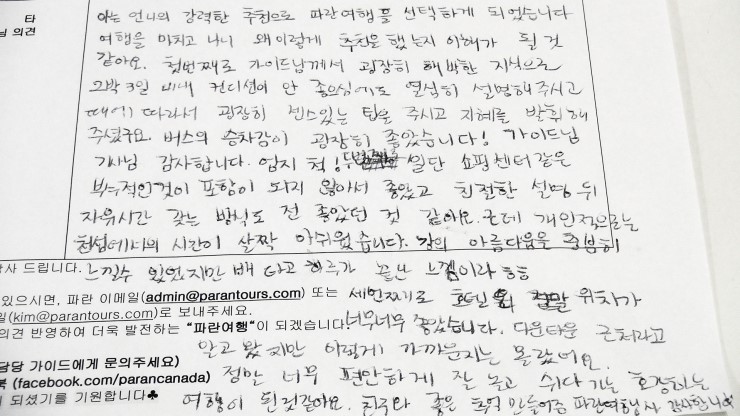 타
님 의견
아는 언니의 강력한 추천으로 파란여행을 선택하게 되었습니다
여행을 마치고 나니 왜 이렇게 추천을 했는지 이해가 될 것
같아요. 첫번째로 가이드님께서 굉장히 해박한 지식으로
2박 3일 내내 컨디션이 안 좋으심에도 열심히 설명해 주시고
때에 따라서 굉장히 센스있는 팁을 주시고 지혜를 발휘해
주셨구요. 버스의 승차감이 굉장히 좋았습니다! 가이드님
기사님 감사합니다. 엄지 척! 두번째로 일단 쇼핑센터같은
부수적인것이 포함이 되지 않아서 좋았고 친절한 설명 뒤
자유시간 갖는 방식도 전 좋았던 것 같아요. 근데 개인적으로는
천섬에서의 시간이 살짝 아쉬웠습니다. 섬의 아름다움을 충분히
사 드립니다. 느낄수 있었지만 배 타고 하루가 끝난 느낌이라 ㅎㅎ
있으시면, 파란 이메일(admin@parantours.com) 또는 세번째로 호텔 정말 위치가
일(kim@parantours.com)로 보내주세요.
의견 반영하여 더욱 발전하는 "파란여행"이 되겠습니다! 너무너무 좋았습니다. 다운타운 근처라고
알고 왔지만 이렇게 가까운지는 몰랐어요.
담당 가이드에게 문의주세요)
북 (facebook.com/parancanada) 정말 너무 편안하게 잘 놀고 쉬다 가는 호강하는
이 되셨기를 기원합니다♣ 여행이 된것같아요. 한국와 좋은 추억 만들어준 파란여행사 감사합니다